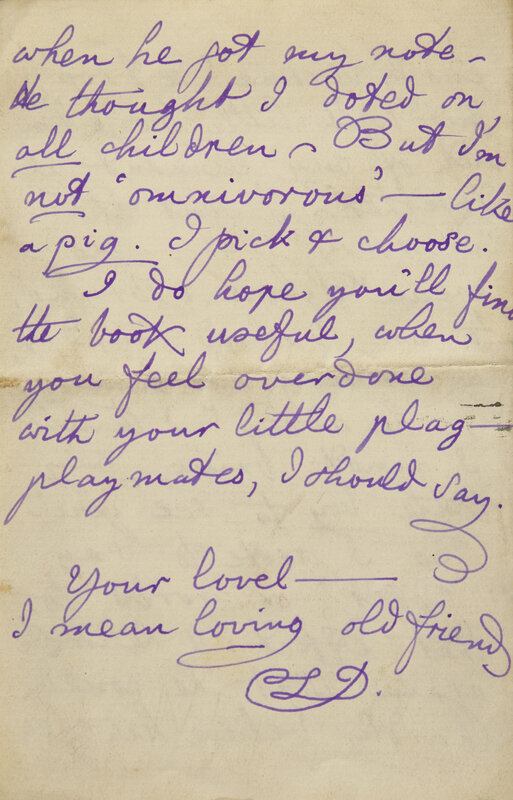 when he got my note –
He thought I doted on
all children – But I'm
not 'omnivorous' — like
a pig. I pick & choose.
I do hope you'll find
the book useful, when
you feel overdone
with your little plag—
playmates, I should say.
Your lovel——
I mean loving old friend
CLD.